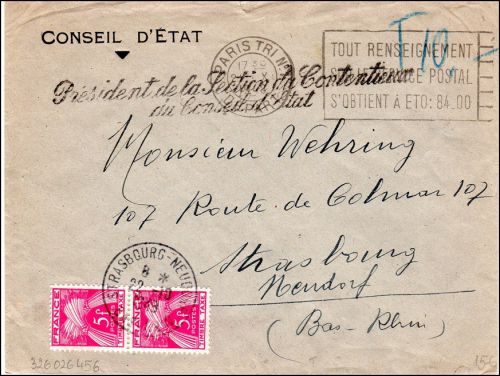 CONSEIL D'ÉTAT
T 10.-
PARIS TRI Nº
17 30
TOUT RENSEIGNEMENT
POSTAL
S'OBTIENT À ÉTO: 84.00
Président de la Section du Contentieux
du Conseil d'Etat
Monsieur Wehring
107 Route de Colmar 107
Strasbourg
Neudorf
(Bas-Rhin)
STRASBOURG-NEUDORF
8 *
22-10
FRANCE 5F POSTES TIMBRE TAXE
FRANCE 5F POSTES TIMBRE TAXE
326026456
156